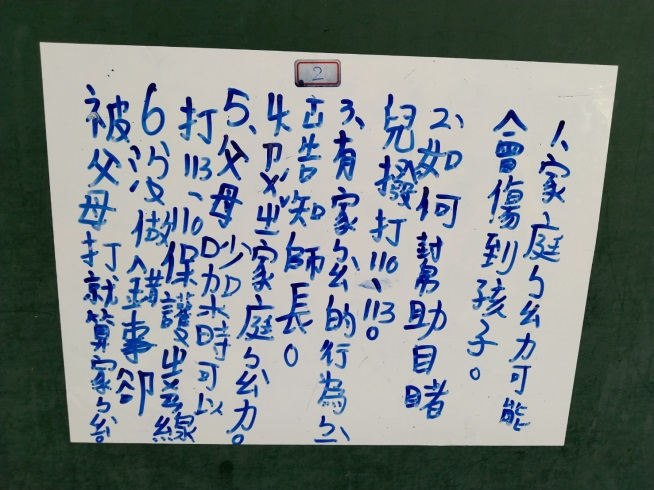 2
1、家庭ㄅㄠ力可能
會傷到孩子。
2、如何幫助目睹
兒撥打110、113。
3、有家ㄅㄠ的行為
告知師長。
4、家庭ㄅㄠ力。
5、父母時可以
打113、110保護線
6沒做錯事卻
被父母打就算家ㄅㄠ。